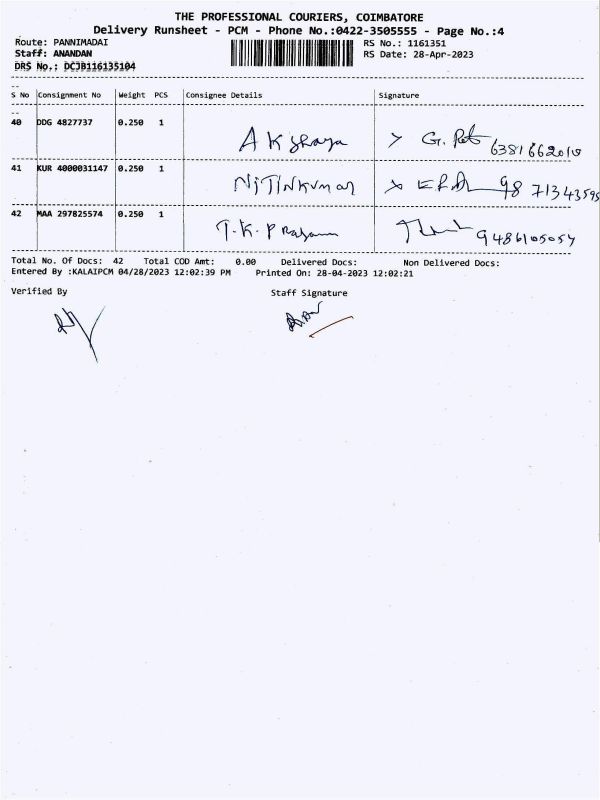 THE PROFESSIONAL COURIERS, COIMBATORE
Delivery Runsheet - PCM - Phone No.:0422-3505555 - Page No.:4
Route: PANNIMADAI RS No.: 1161351
Staff: ANANDAN RS Date: 28-Apr-2023
DRS No.: DCJB116135104
S No Consignment No Weight PCS Consignee Details Signature
40 DDG 4827737 0.250 1 Akshaya 6381662010
41 KUR 4000031147 0.250 1 NiTiNkumar 98 71343595
42 MAA 297825574 0.250 1 T.K. 9486105054
Total No. Of Docs: 42 Total COD Amt: 0.00 Delivered Docs: Non Delivered Docs:
Entered By :KALAIPCM 04/28/2023 12:02:39 PM Printed On: 28-04-2023 12:02:21
Verified By Staff Signature